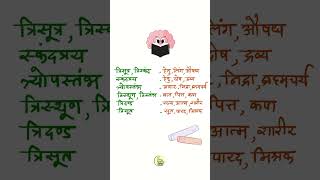 त्रिसूत्र, त्रिस्कंद - हेतु, लिंग, औषध
स्कंदत्रय - हेतु, दोष, द्रव्य
त्र्योपस्तंभ - आहार, निद्रा, ब्रह्मचर्य
त्रिस्थुण, त्रिस्तंभ - वात, पित्त, कफ
त्रिदण्ड - सत्व, आत्म, शरीर
त्रिसूत - सूत, पारद, मिश्रक